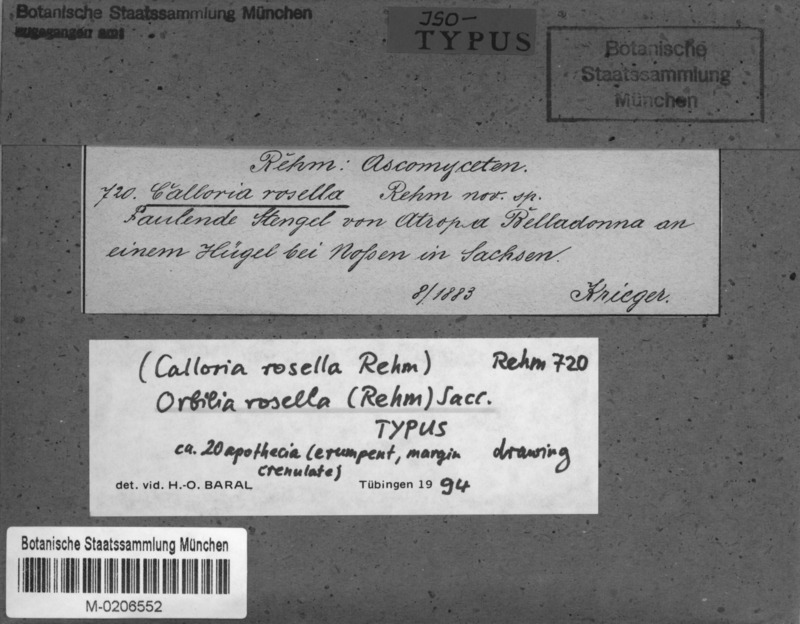 Botanische Staatssammlung München
zugegangen am:
ISO-
TYPUS
Botanische
Staatssammlung
München
Rehm: Ascomyceten.
720. Calloria rosella Rehm nov. sp.
Faulende Stengel von Atropa Belladonna an
einem Hügel bei Noßen in Sachsen.
8/1883 Krieger.
(Calloria rosella Rehm) Rehm 720
Orbilia rosella (Rehm) Sacc.
TYPUS
ca. 20 apothecia (erumpent, margin drawing
crenulate)
det. vid. H.-O. BARAL Tübingen 19 94
Botanische Staatssammlung München
M-0206552